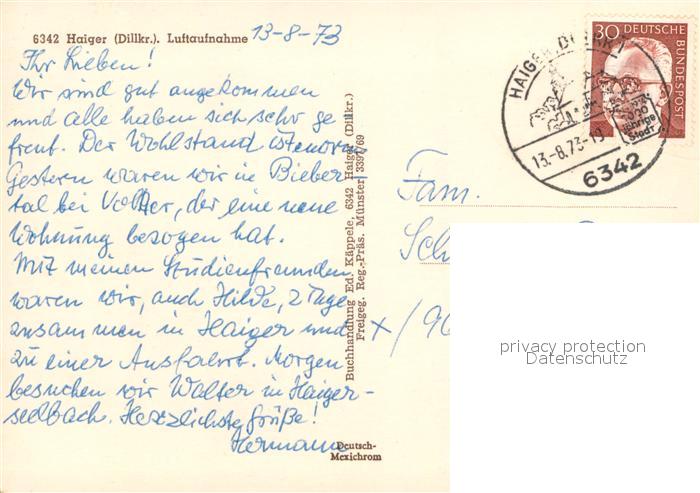 6342 Haiger (Dillkr.). Luftaufnahme 13-8-73
Ihr Lieben!
Wir sind gut angekommen
und alle haben sich sehr ge
freut. Der Wohlstand ist enorm
Gestern waren wir in Bieber
tal bei Volker, der eine neue
Wohnung bezogen hat.
Mit meinen Studienfreunden
waren wir, auch Hilde, 2 Tage
zusammen in Haiger und
zu einer Ausfahrt. Morgen
besuchen wir Walter in Haiger-
seelbach. Herzlichste Grüße!
Hermann
Deutsch-
Mexichrom
Buchhandlung Ed. Käppele, 6342 Haiger (Dillkr.)
Freigeg. Reg.-Präs. Münster 3397/69
HAIGER, DILLKR 1
13.-8.73-19
6342
jährige
Stadt
30 DEUTSCHE
BUNDESPOST
Fam.
Sch
x/96
privacy protection
Datenschutz